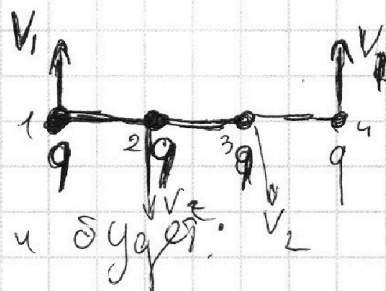 V₁ V₁
1 2 3 4
q q q q
V₂ V₂
и будет: